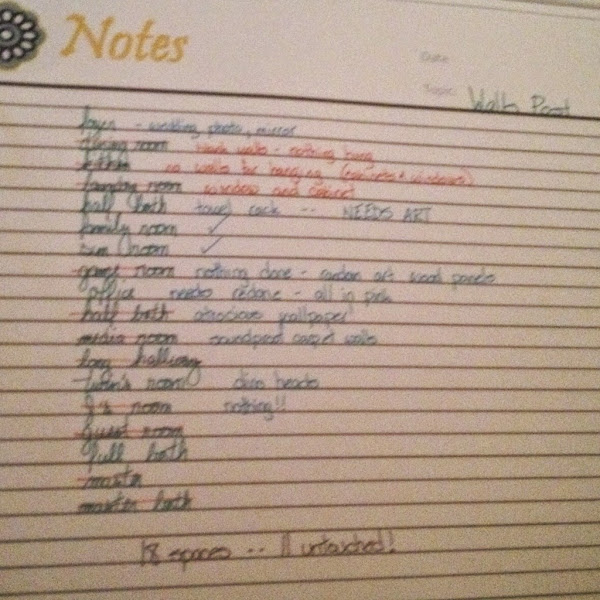 Notes
Date
Topic Walls Post
foyer - wedding photo, mirror
dining room wood walls - nothing hung
kitchen no walls for hanging (cabinets + windows)
laundry room window and cabinet
half bath towel rack -- NEEDS ART
family room ✓
sun room ✓
game room nothing done - random art wood panels
office needs redone - all in pick
half bath atrocious wallpaper
media room soundproof carpet walls
long hallway
twin's room dino heads
J's room nothing!!
guest room
full bath
master
master bath
18 spaces -- 11 untouched!